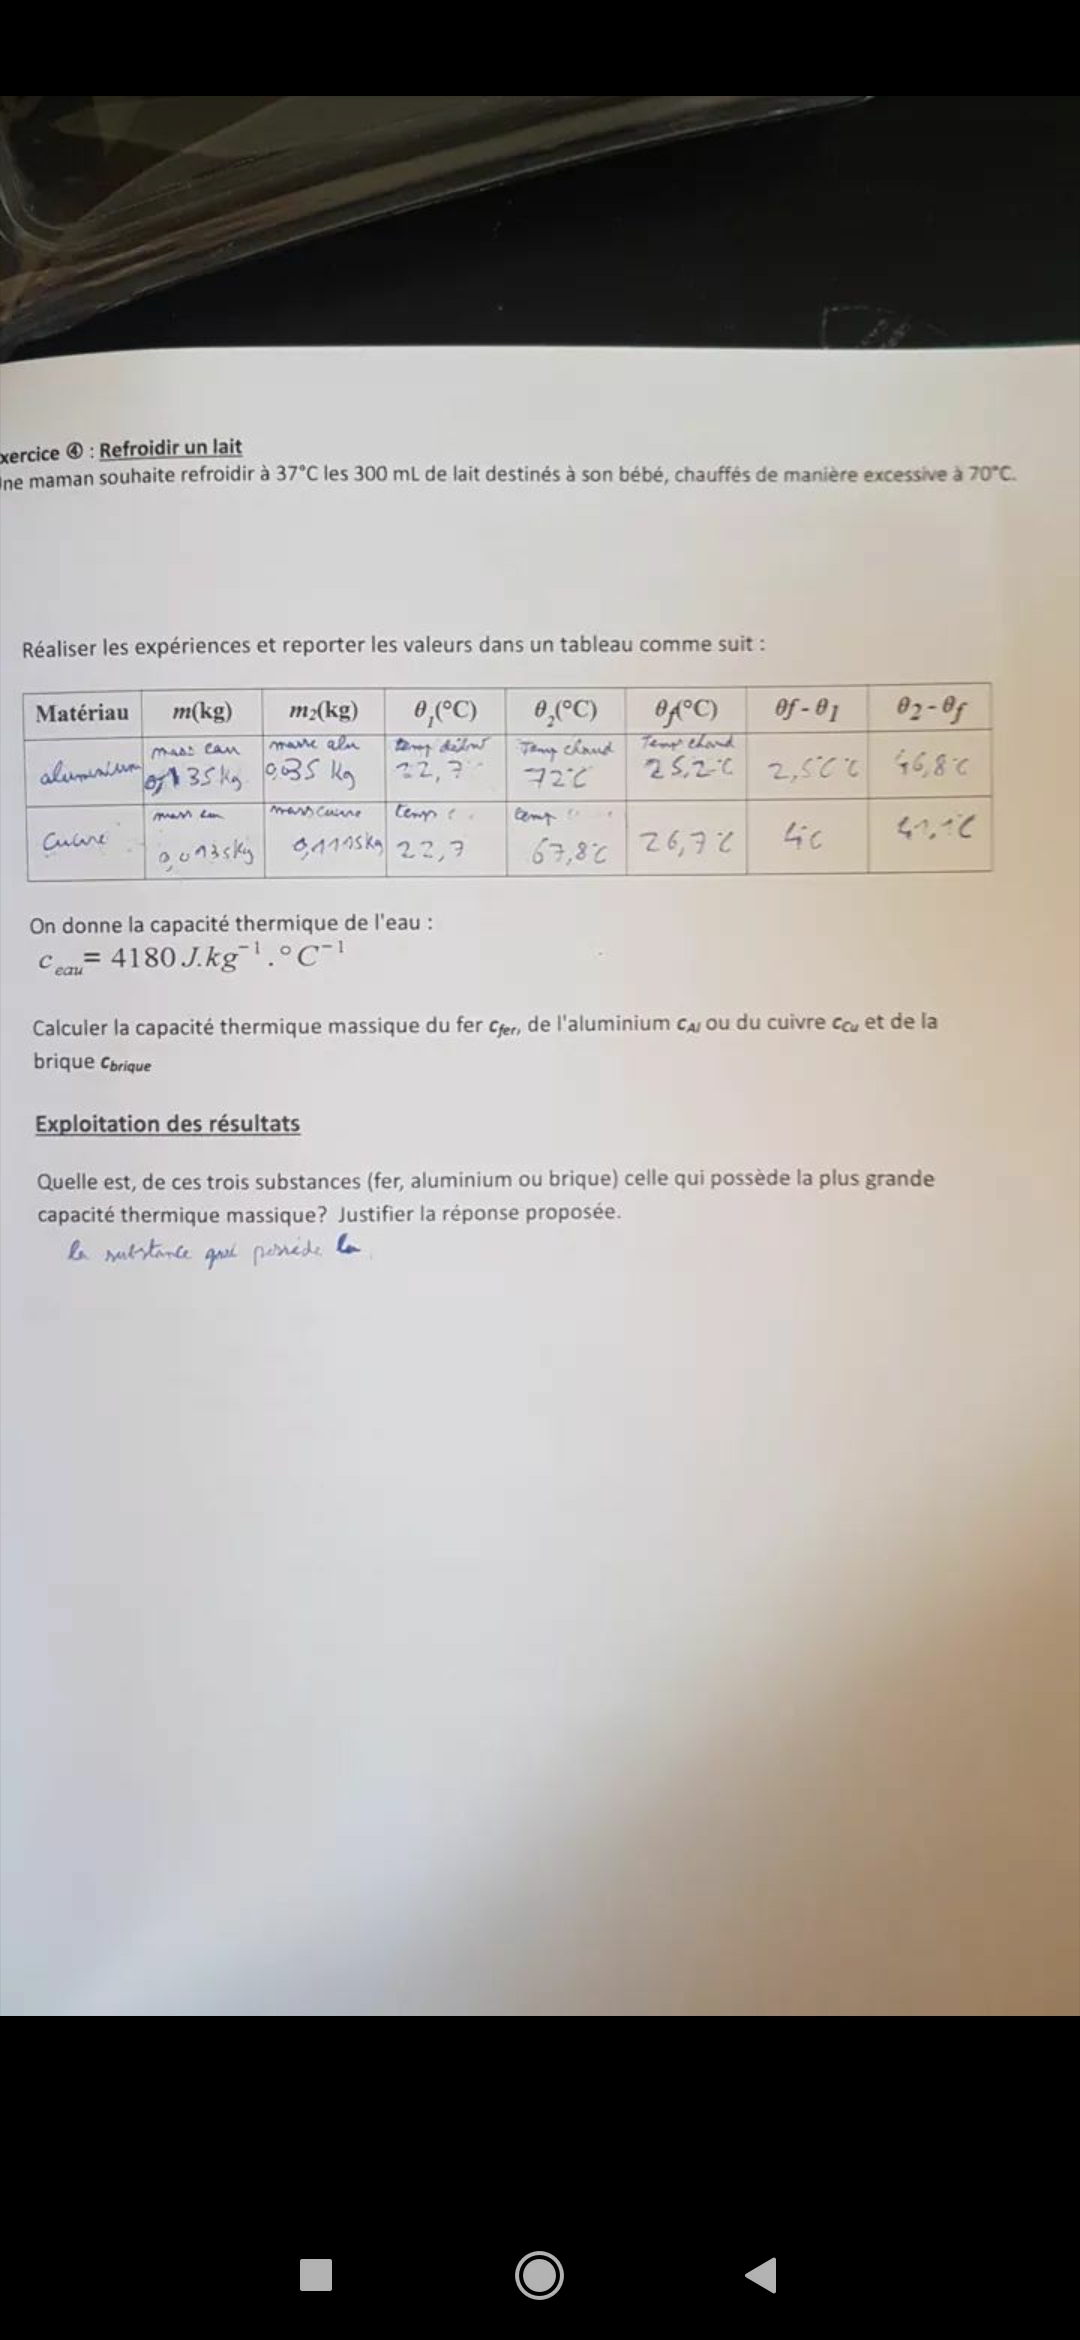 xercice ④ : Refroidir un lait
ne maman souhaite refroidir à 37°C les 300 mL de lait destinés à son bébé, chauffés de manière excessive à 70°C.
Réaliser les expériences et reporter les valeurs dans un tableau comme suit :
Matériau m(kg) m₂(kg) θ₁(°C) θ₂(°C) θf(°C) θf - θ1 θ2 - θf
mass eau masse alu temp début Temp chaud Temp chaud
aluminium 0,135 kg 0,035 kg 22,7 72°C 25,2°C 2,5°C 46,8°C
mass eau mass cuivre temp temp
Cuivre 0,0135kg 0,1115kg 22,7 67,8°C 26,7°C 4°C 41,1°C
On donne la capacité thermique de l'eau :
c eau = 4180 J.kg⁻¹.°C⁻¹
Calculer la capacité thermique massique du fer cfer, de l'aluminium cAl ou du cuivre cCu et de la
brique cbrique
Exploitation des résultats
Quelle est, de ces trois substances (fer, aluminium ou brique) celle qui possède la plus grande
capacité thermique massique? Justifier la réponse proposée.
la substance qui possède la